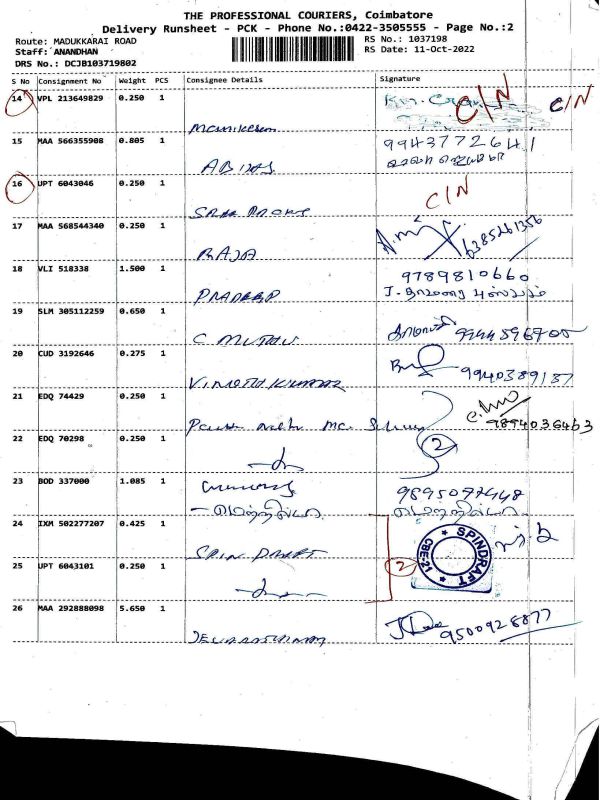 THE PROFESSIONAL COURIERS, Coimbatore
Delivery Runsheet - PCK - Phone No.:0422-3505555 - Page No.:2
Route: MADUKKARAI ROAD
RS No.: 1037198
Staff: ANANDHAN
RS Date: 11-Oct-2022
DRS No.: DCJB103719802
S No Consignment No Weight PCS Consignee Details Signature
14 VPL 213649829 0.250 1 C/N C/N
15 MAA 566355908 0.805 1 9943772641
16 UPT 6043046 0.250 1 C/N
17 MAA 568544340 0.250 1 6385261356
RAJA
18 VLI 518338 1.500 1 9789810660
PRADEEP
19 SLM 305112259 0.650 1
C MUTHU
20 CUD 3192646 0.275 1 9940389187
VINOTH KUMAR
21 EDQ 74429 0.250 1
9894036463
22 EDQ 70298 0.250 1 2
23 BOD 337000 1.085 1 9895097448
24 IXM 502277207 0.425 1 SPINDRAFT
CBE-21
SPIN DRAFT
25 UPT 6043101 0.250 1 2
26 MAA 292888098 5.650 1 9500928877